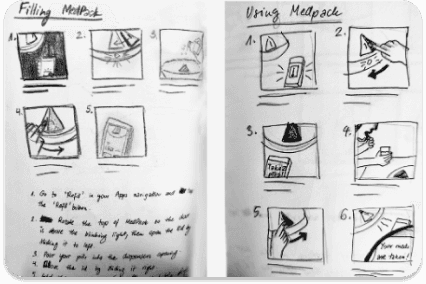 Filling MedPack
1.
2.
3.
4.
5.
1. Go to "Refill" in your Apps navigation and
the "Refill" button.
2. Rotate the top of MedPack so the
is above the blinking light, then open the lid by
sliding it to
3. Pour your pills into the dispenser opening
4. the lid by sliding it
Using Medpack
1.
2.
3.
Take a
4.
5.
6.
Your meds
are taken!